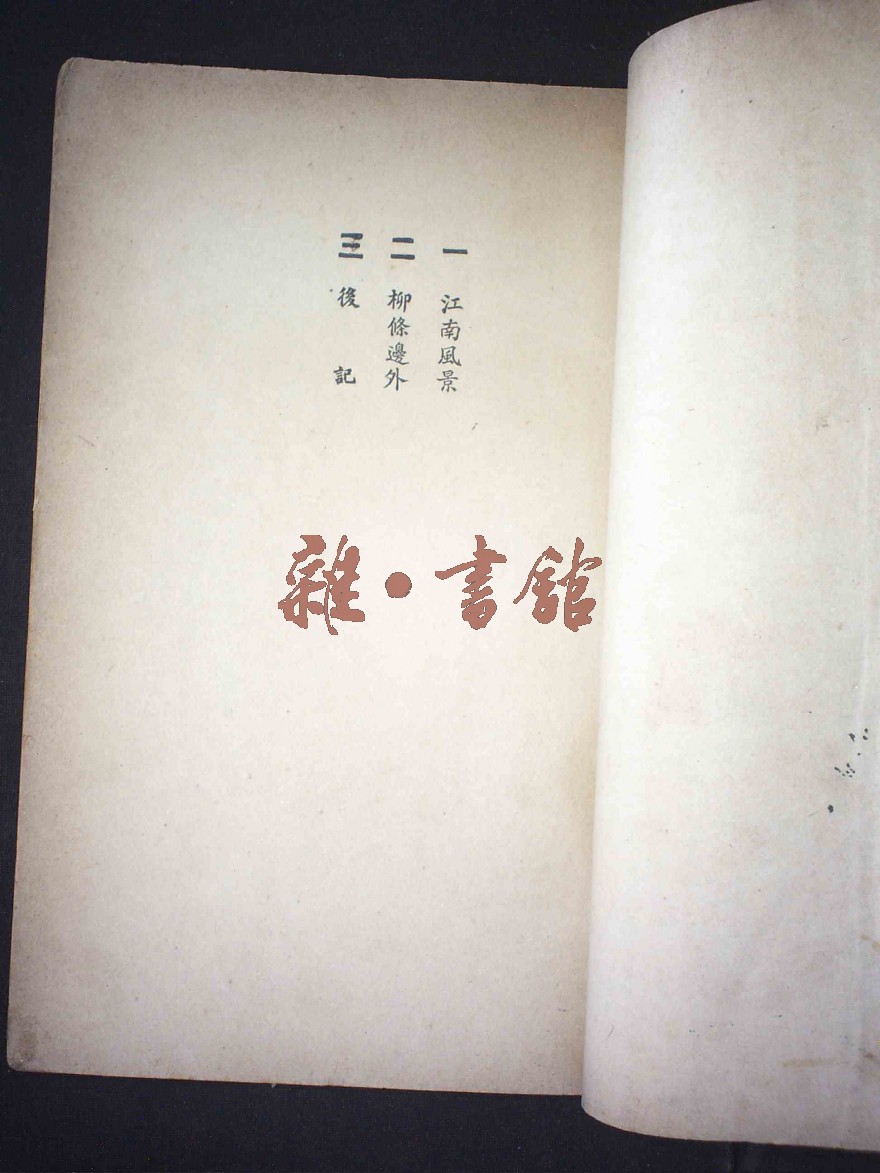 一 江南風景
二 柳條邊外
三 後記
雜•書館